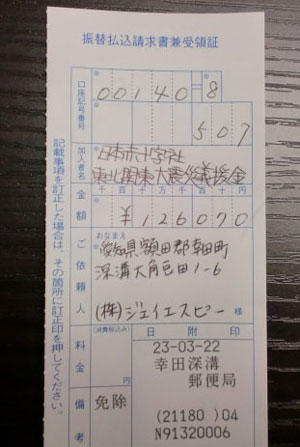 振替払込請求書兼受領証
口座記号番号
00140=8
507
加入者名
日本赤十字社
東北関東大震災義援金
金額
千百十万千百十円
¥126070
ご依頼人
おなまえ
愛知県額田郡幸田町
深溝大角豆田1-6
(株)ジェイエスピー 様
料金
(消費税込み)
円
日附印
23-03-22
幸田深溝
郵便局
備考
免除
(21180 )04
N91320006
記載事項を訂正した場合は、その箇所に訂正印を押してください。